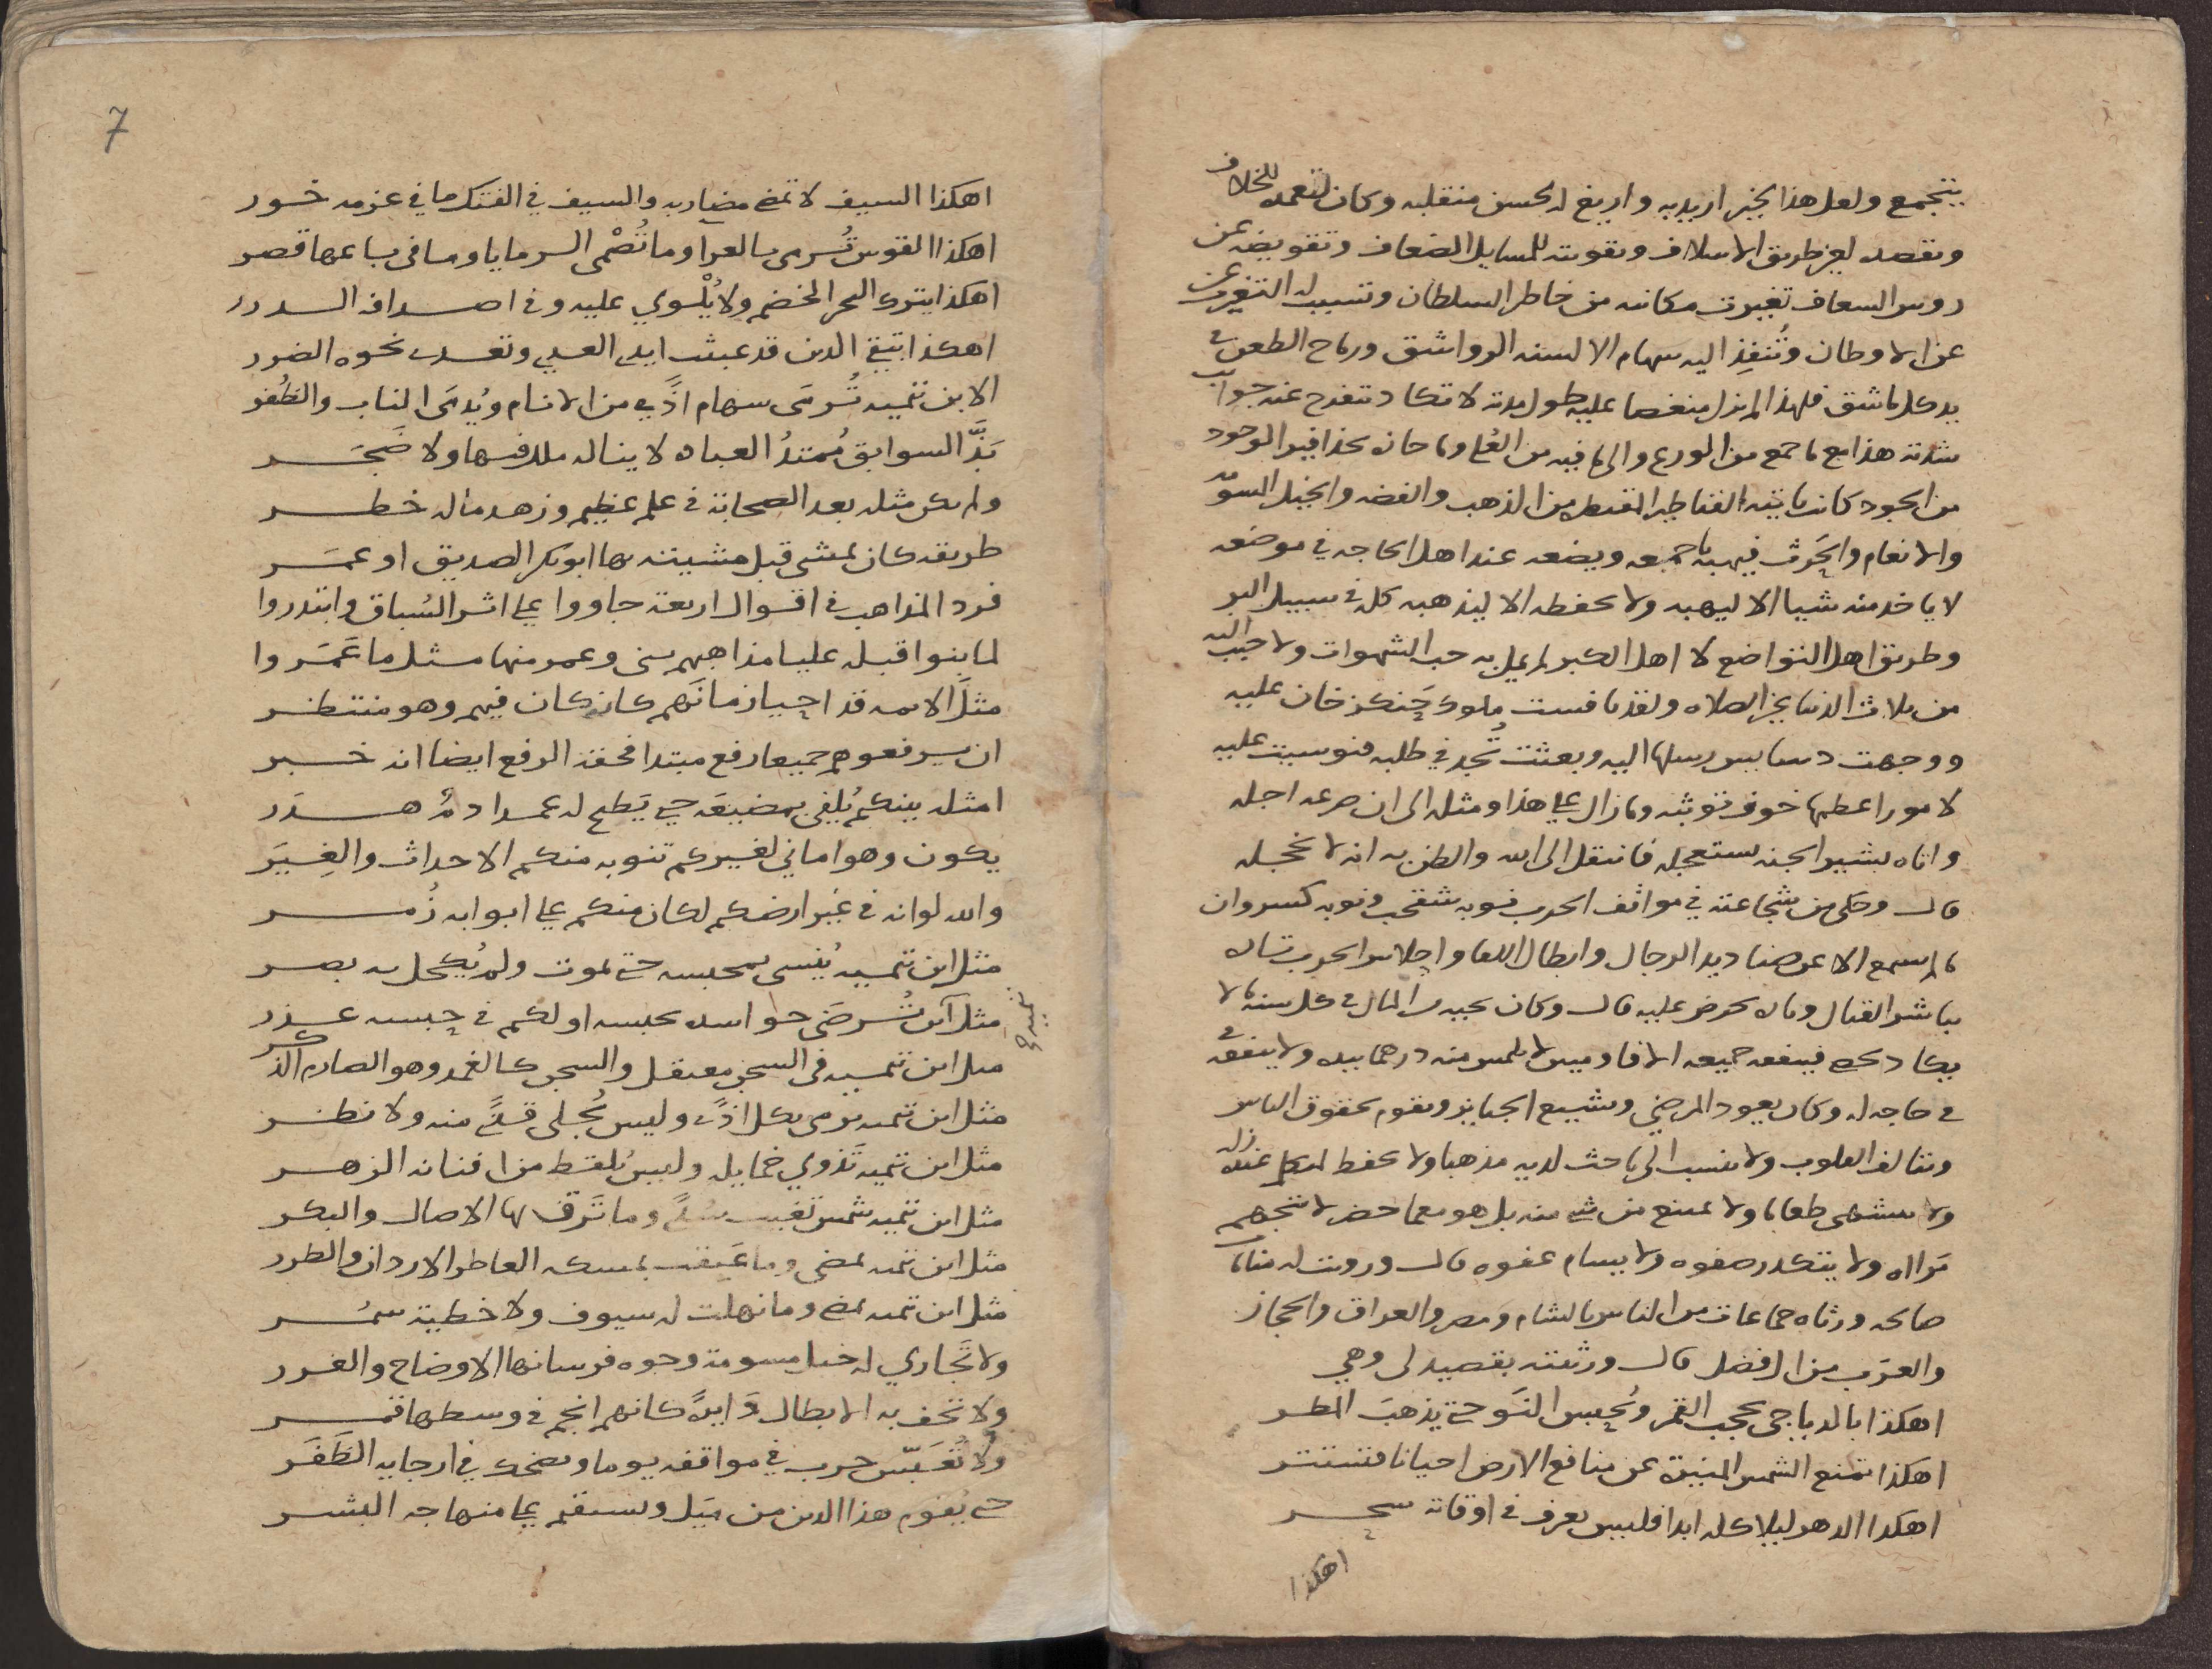 يتجمع ولعل هذا لخير اريد به واريغ له لحسن منقلبه وكان لتعمده للخلاف
وتقصده لغير طريق الاسلاف وتقويته للمسايل الضعاف وتقويضه عن
روس السعاف تغيرت مكانته من خاطر السلطان وتسبب له التغرب عن
عن الاوطان وتُنفِذ اليه سهام الالسنه الرواشق ورماح الطعن في
يد كل ماشق فلهذا لم يزل منغصا عليه طول مدته لا تكاد تنفرج عنه جوانب
شدته هذا مع ما جمع من الورع والى ما فيه من العُلى وما حازه بحذافير الوجود
من الجود كانت تاتيه القناطير المقنطره من الذهب والفضه والخيل المسومه
والانعام والحَرث فيهبه باجمعه ويضعه عند اهل الحاجه في موضعه
لا ياخذ منه شيا الا ليهبه ولا يحفظه الا ليذهبه كله في سبيل البر
وطريق اهل التواضع لا اهل الكبر لم يمل به حب الشهوات ولا حبب اليه
من ثلاث الدنيا غير الصلاه ولقد نافست ملوك جَنكزخان عليه
ووجهت دسايس رسلها اليه وبعثت تُجد في طلبه فنوسيت عليه
لامور اعظمها خوف توثبه وما زال على هذا ومثله الى ان صرعه اجله
واتاه بشير الجنه يستعجله فانتقل الى الله والظن به انه لا يخجله
قال وحكى من شجاعته في مواقف الحرب نوبه شقحب ونوبه كسروان
ما لم يسمع الا عن صناديد الرجال وابطال اللقا واحلاس الحرب تاره
يباشر القتال وتاره يحرض عليه قال وكان يجيه من المال في كل سنه ما لا
يكاد يحصى فينفقه جميعه الافا وميين لا يلمس منه درهما بيده ولا ينفقه
في حاجه له وكان يعود المرضى ويشيع الجنايز ويقوم بحقوق الناس
ويتالف القلوب ولا ينسب الى باحث لديه مذهبا ولا يحفظ لمتكلم عنده زله
ولا يشتهى طعاما ولا يمتنع من شي منه بل هو مع ما حضر لا يتجهم
مرااه ولا يتكدر صفوه ولا يسام عفوه قال ورويت له منامات
صالحه ورثاه جماعات من الناس بالشام ومصر والعراق والحجاز
والعرب من ال فضل قال ورثيته بقصيده لى وهي
اهكذا بالدياجى يحجب القمر ويُحبس النَّو حتى يذهبَ المطر
اهكذا تمنع الشمس المنيرة عن منافع الارض احيانا فتستتر
اهكذا الدهر ليلا كله ابدا فليس يعرف في اوقاته سحر
اهكذا
7
اهكذا السيف لا تمضى مضاربه والسيف في الفتك ما في عزمه خور
اهكذا القوس تُرمى بالعرا وما تُصْمى الرمايا وما في باعها قصر
اهكذا يترك البحر الخضم ولا يُلْوي عليه وفى اصدافه الدرر
اهكذا بتقى الدين قد عبثت ايدى العدى وتعدى نحوه الضرر
الا ابن تيميه تُرمَى سهام اذًى من الانام ويُدمَى الناب والظُفُر
بَذَّ السوابق مُمتدُ العباده لا يناله ملل فيها ولا ضَجَر
ولم يكن مثله بعد الصحابة في علم عظيم وزهد ماله خطر
طريقه كان يمشى قبل مشيته بها ابو بكر الصديق او عمَر
فرد المذاهب في اقوال اربعة جاووا على اثر السُباق وابتدروا
لما بنوا قبله عليا مذاهبهم بنى وعمر منها مثل ما عَمَروا
مثلَ الايمه قد احيا زمانَهم كانه كان فيهم وهو منتظر
ان يرفعوهم جميعا رفع مبتدا فحقه الرفع ايضا انه خبر
امثله بينكم يُلقى بمضيعَه حتى يَطيح له عمدا دمٌ هدَر
يكون وهو اماني لغيركم تنوبه منكم الاحداث والغِيَر
والله لو انه في غير ارضكم لكان منكم على ابوابه زُمر
مثل ابن تيميه يُنسى بمحبسه حتى يموت ولم يُكحل به بصر
مثل ابن تيميه تُرضَى حواسده بحبسه او لكم في حبسه عذر
مثل ابن تيميه في السجن معتقل والسجن كالغمد وهو الصارم الذكر
مثل ابن تيميه يرمى بكل اذًى وليس يُجلى قذًى منه ولا نظر
مثل ابن تيميه تَذوي خمايله وليس يُلقط من افنانه الزهر
مثل ابن تيميه شمس تغيب سُدًى وما تَرق بها الاصال والبكر
مثل ابن تيميه يمضى وما عَبِقت بمسكه العاطر الاردان والطرر
مثل ابن تيميه يمضى وما نهلت له سيوف ولا خطية سمُر
ولا تُجاري له خيل مسومة وجوه فرسانها الاوضاح والغرر
ولا تحف به الابطال دَايرةً كانهم انجم في وسطها قمر
ولا تُعَبّس حرب في مواقفه يوما ويضحك في ارجايه الظَفَر
حتى يُقوم هذا الدين من مَيَل ويستقيم على منهاجه البشر